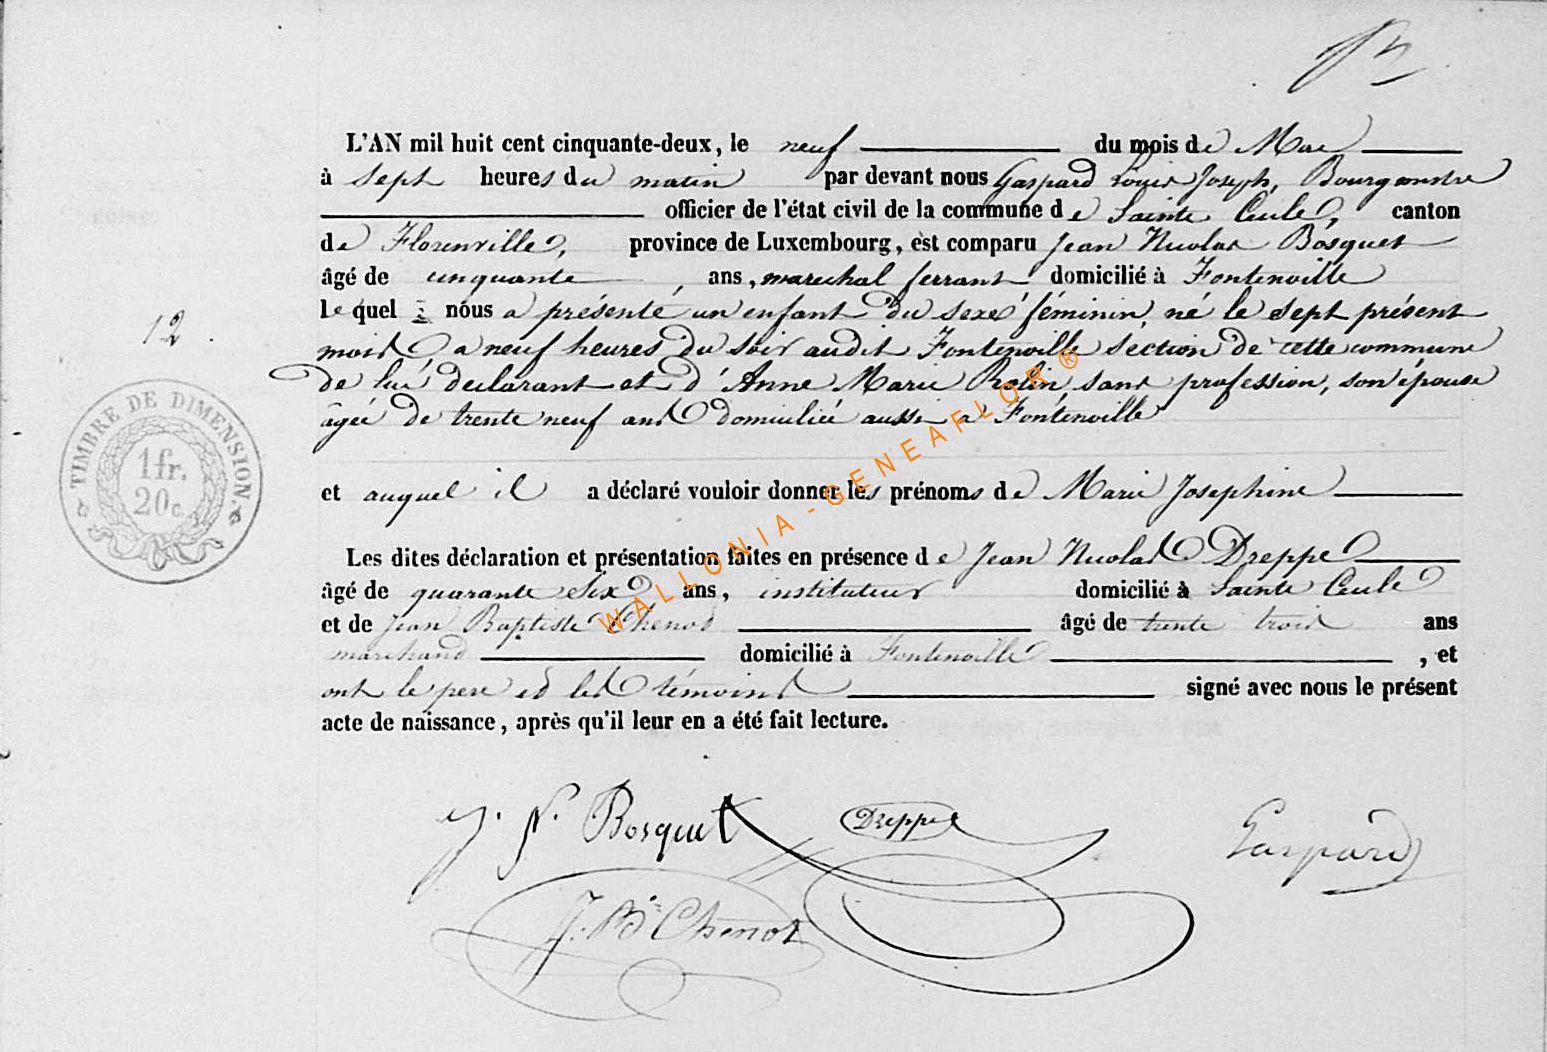 L'AN mil huit cent cinquante-deux, le neuf du mois de Mai
à sept heures du matin par devant nous Gaspard Louis Joseph, Bourgmestre
officier de l'état civil de la commune de Sainte Cecile, canton
de Florenville, province de Luxembourg, est comparu Jean Nicolas Bosquet
âgé de cinquante, ans, marechal ferrant domicilié à Fontenoille
12
le quel nous a présenté un enfant du sexe féminin, né le sept présent
mois, a neuf heures du soir audit Fontenoille section de cette commune
de lui declarant et d'Anne Marie Rolin, sans profession, son épouse
âgée de trente neuf ans domiciliée aussi a Fontenoille
TIMBRE DE DIMENSION
1 fr.
20 c.
et auquel il a déclaré vouloir donner les prénoms de Marie Josephine
Les dites déclaration et présentation faites en présence de Jean Nicolas Dreppe
âgé de quarante six ans, instituteur domicilié à Sainte Cecile
et de Jean Baptiste Chenot âgé de trente trois ans
marchand domicilié à Fontenoille, et
ont le pere et les témoins signé avec nous le présent
acte de naissance, après qu'il leur en a été fait lecture.
J. N. Bosquet Dreppe Gaspard
J. Bte Chenot
WALLONIA - GENEAFLOR ®